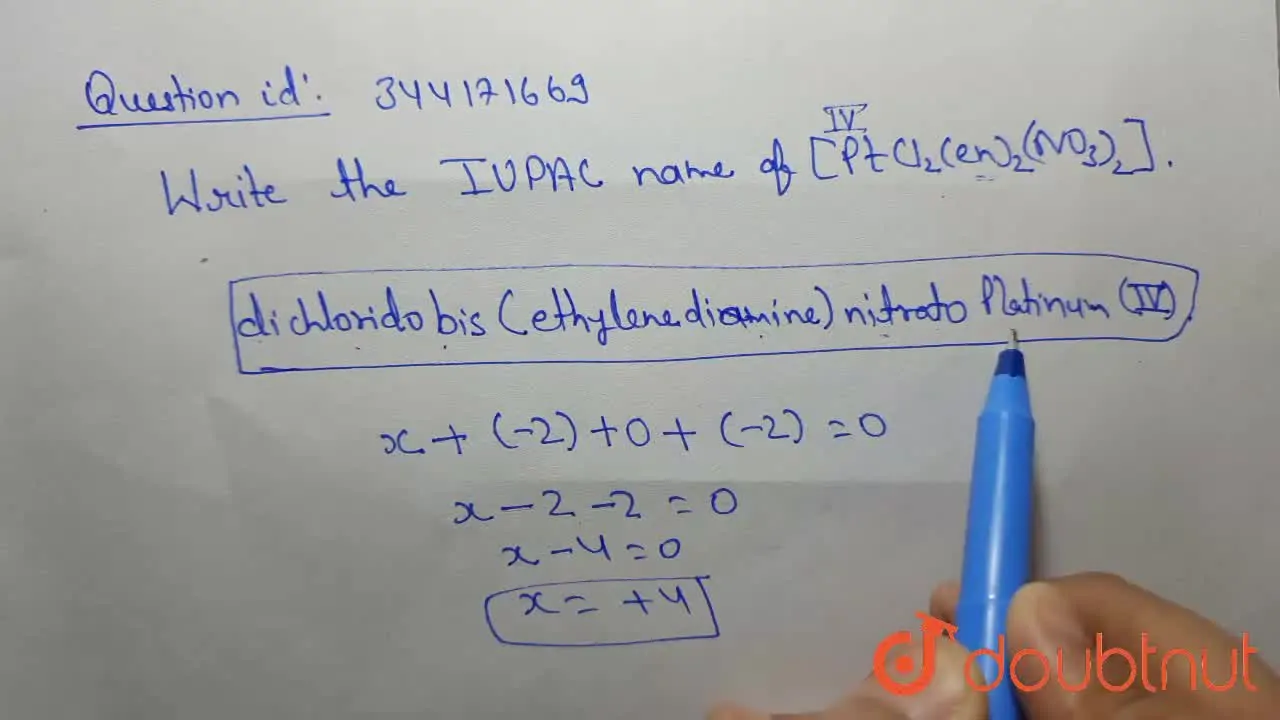 Question id: 344171669
IV
Write the IUPAC name of [PtCl₂(en)₂(NO₃)₂].
dichloridobis(ethylenediamine)nitrato Platinum(IV)
x + (-2) + 0 + (-2) = 0
x - 2 - 2 = 0
x - 4 = 0
x = +4
doubtnut